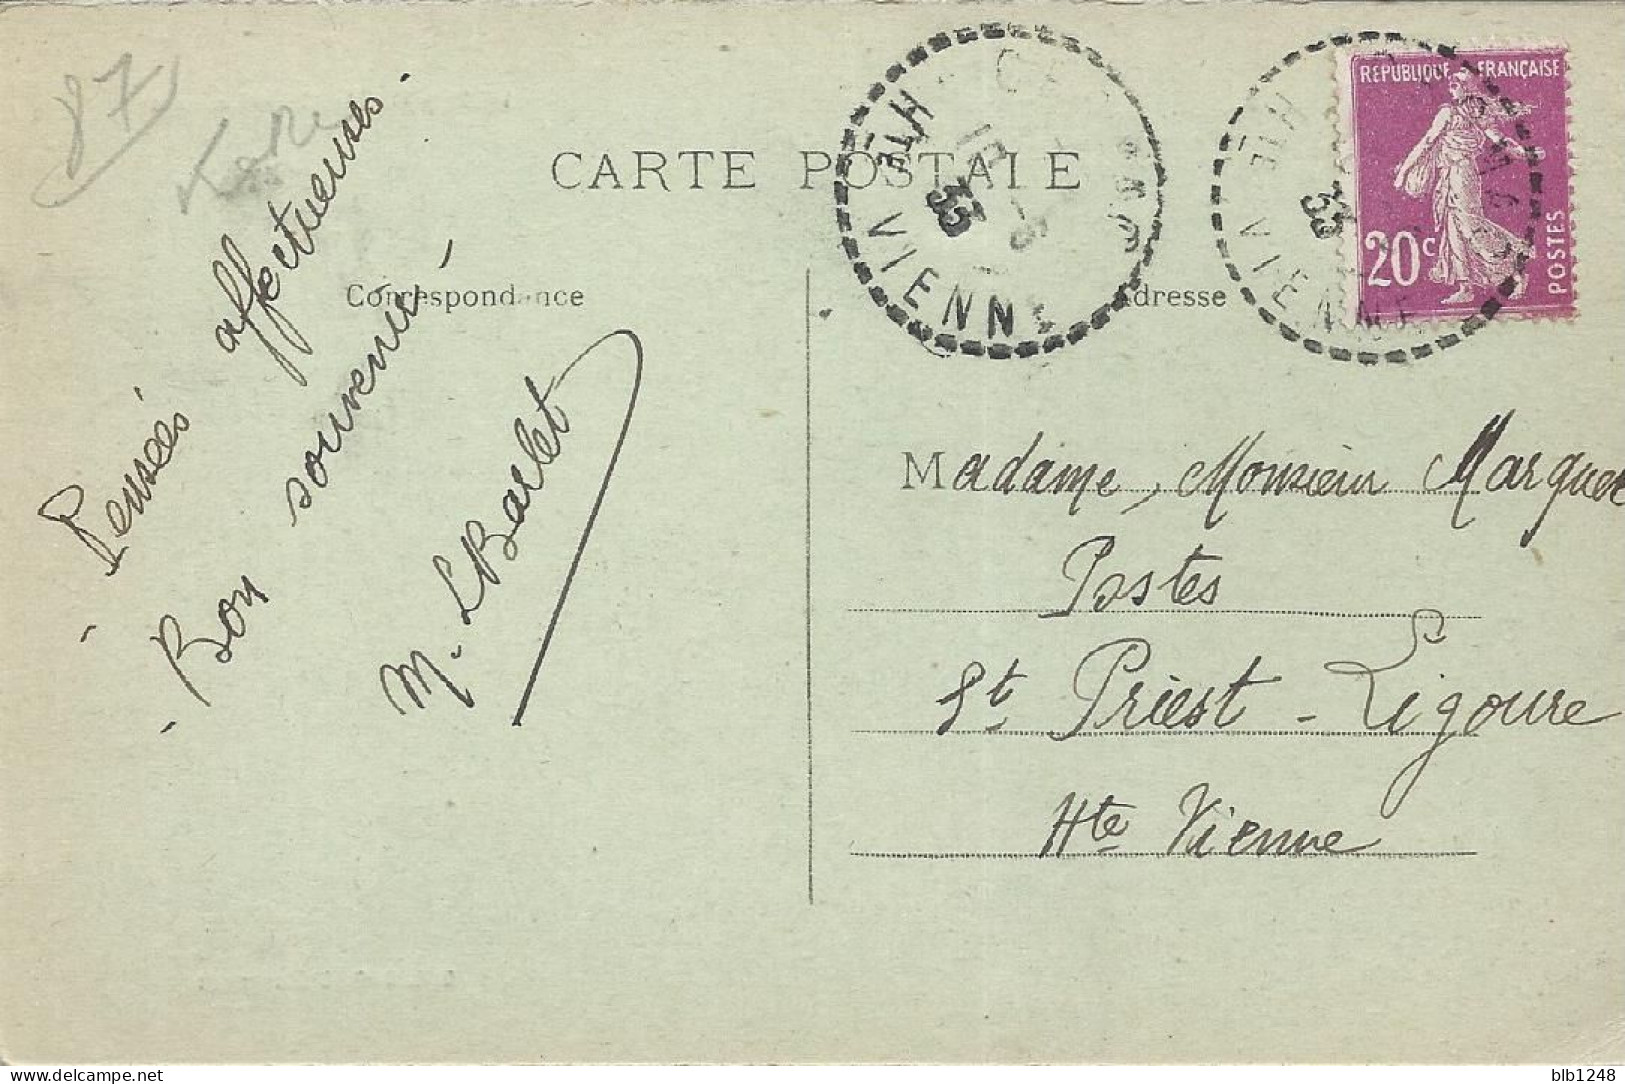 87
CARTE POSTALE
Correspondance
Adresse
RÉPUBLIQUE FRANÇAISE
20c
POSTES
HTE VIENNE
33
HTE VIENNE
33
- Pensées affectueuses -
- Bon souvenir -
M. LBarlet
Madame, Monsieur Marquet
Postes
St Priest - Ligoure
Hte Vienne
delcampe.net
blb1248